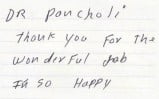 DR Pancholi
Thank you for the
wonderful job
I'm so Happy